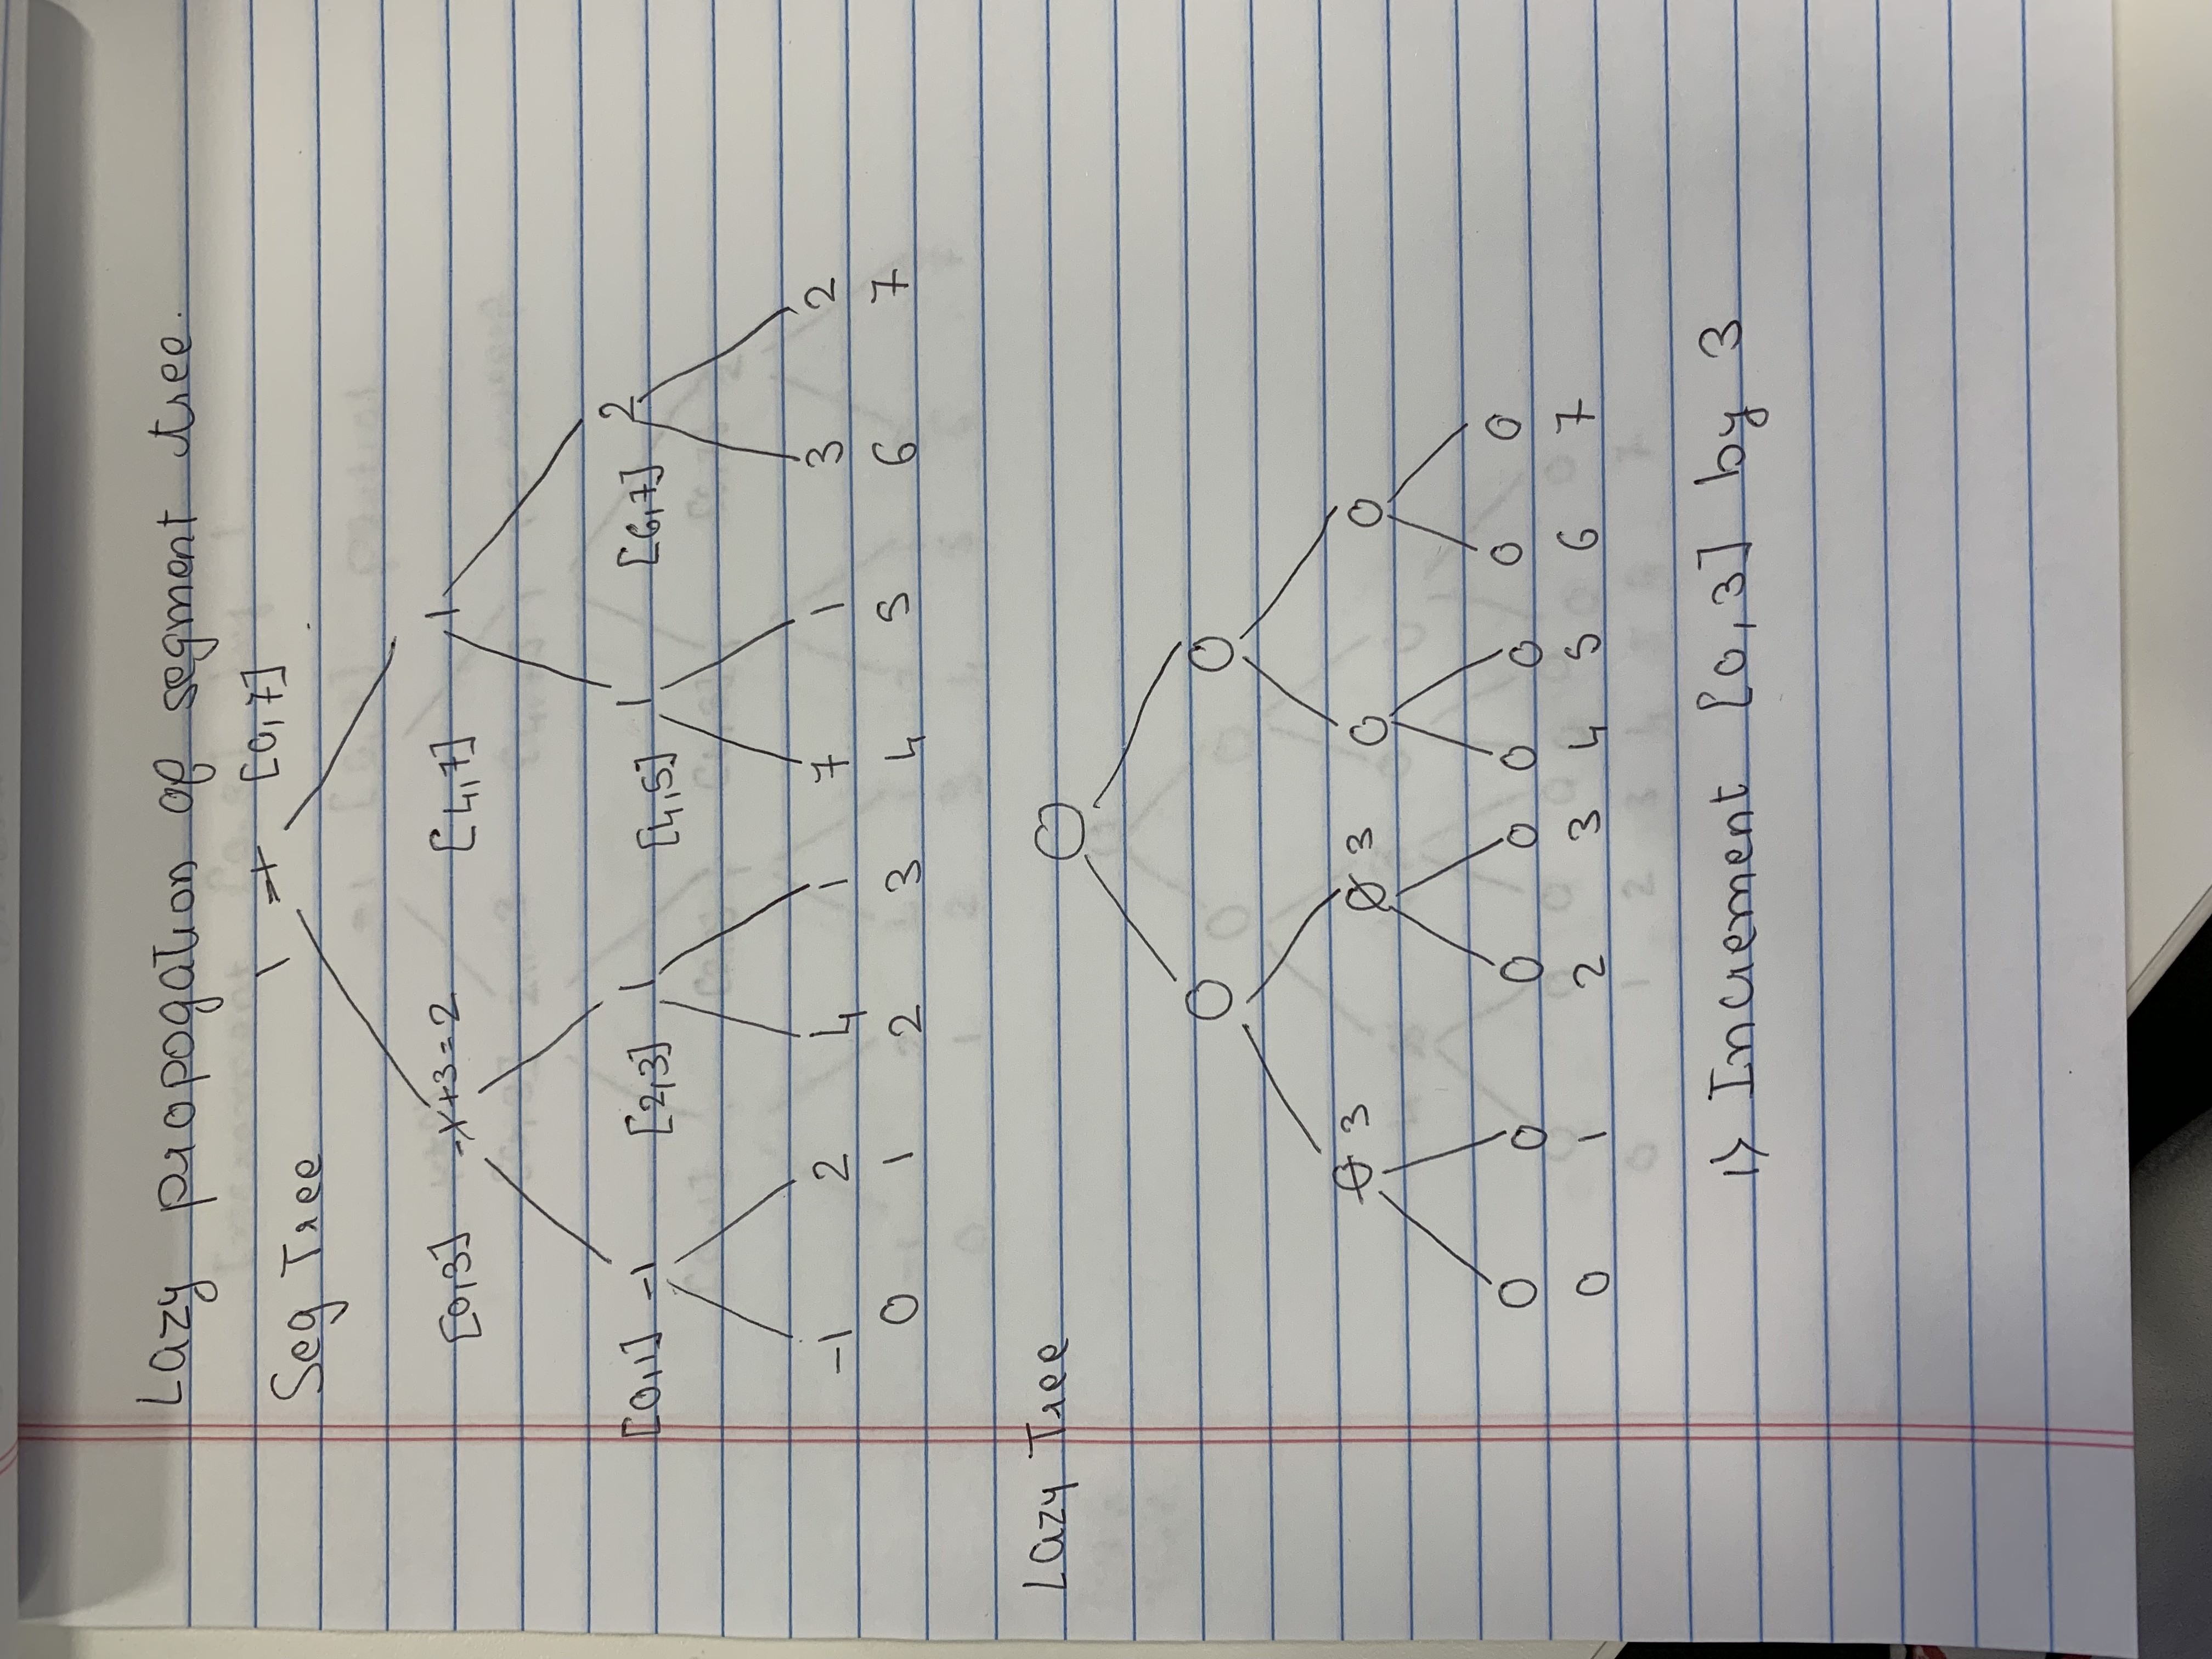 Lazy propogation of segment tree.
1 -1 [0,7]
Seg Tree
[0,3] -1+3=2 [4,7] 1
[0,1] -1 [2,3] 1 [4,5] 1 [6,7] 2
-1 2 4 1 7 1 3 2
0 1 2 3 4 5 6 7
Lazy Tree
0
0 0
0 3 0 3 0 0
0 0 0 0 0 0 0 0
0 1 2 3 4 5 6 7
1> Increment [0,3] by 3